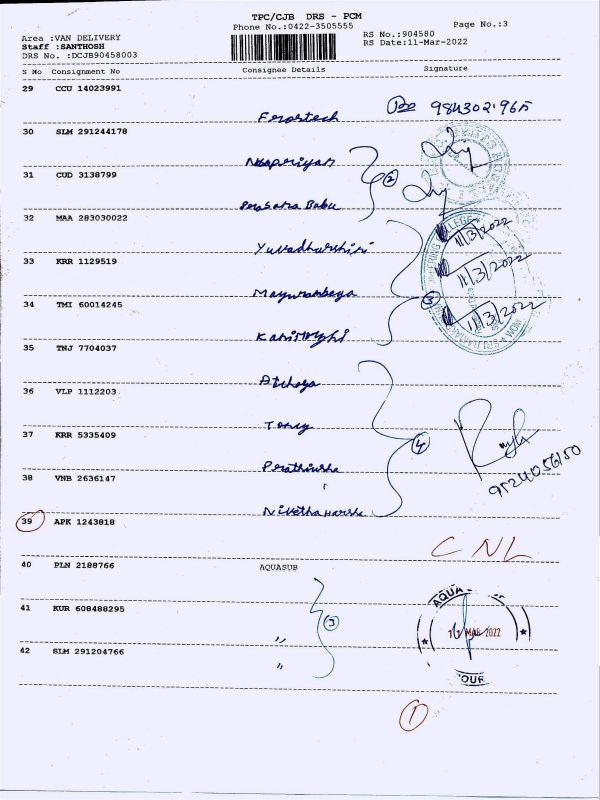 TPC/CJB DRS - PCM
Phone No.:0422-3505555
Page No.:3
Area :VAN DELIVERY
Staff :SANTHOSH
DRS No. :DCJB90458003
RS No.:904580
RS Date:11-Mar-2022
S No Consignment No Consignee Details Signature
29 CCU 14023991
984302.965
30 SLM 291244178
31 CUD 3138799
2
32 MAA 283030022
Yuvadharshini
11/3/2022
33 KRR 1129519
11/3/2022
3
34 TMI 60014245
11/3/2022
35 TNJ 7704037
36 VLP 1112203
37 KRR 5335409
4
38 VNB 2636147
9524056150
Nivethaharsha
39 APK 1243818
CNL
40 PLN 2188766 AQUASUB
AQUA
41 KUR 608488295
3
11 MAR 2022
"
42 SLM 291204766
"
1